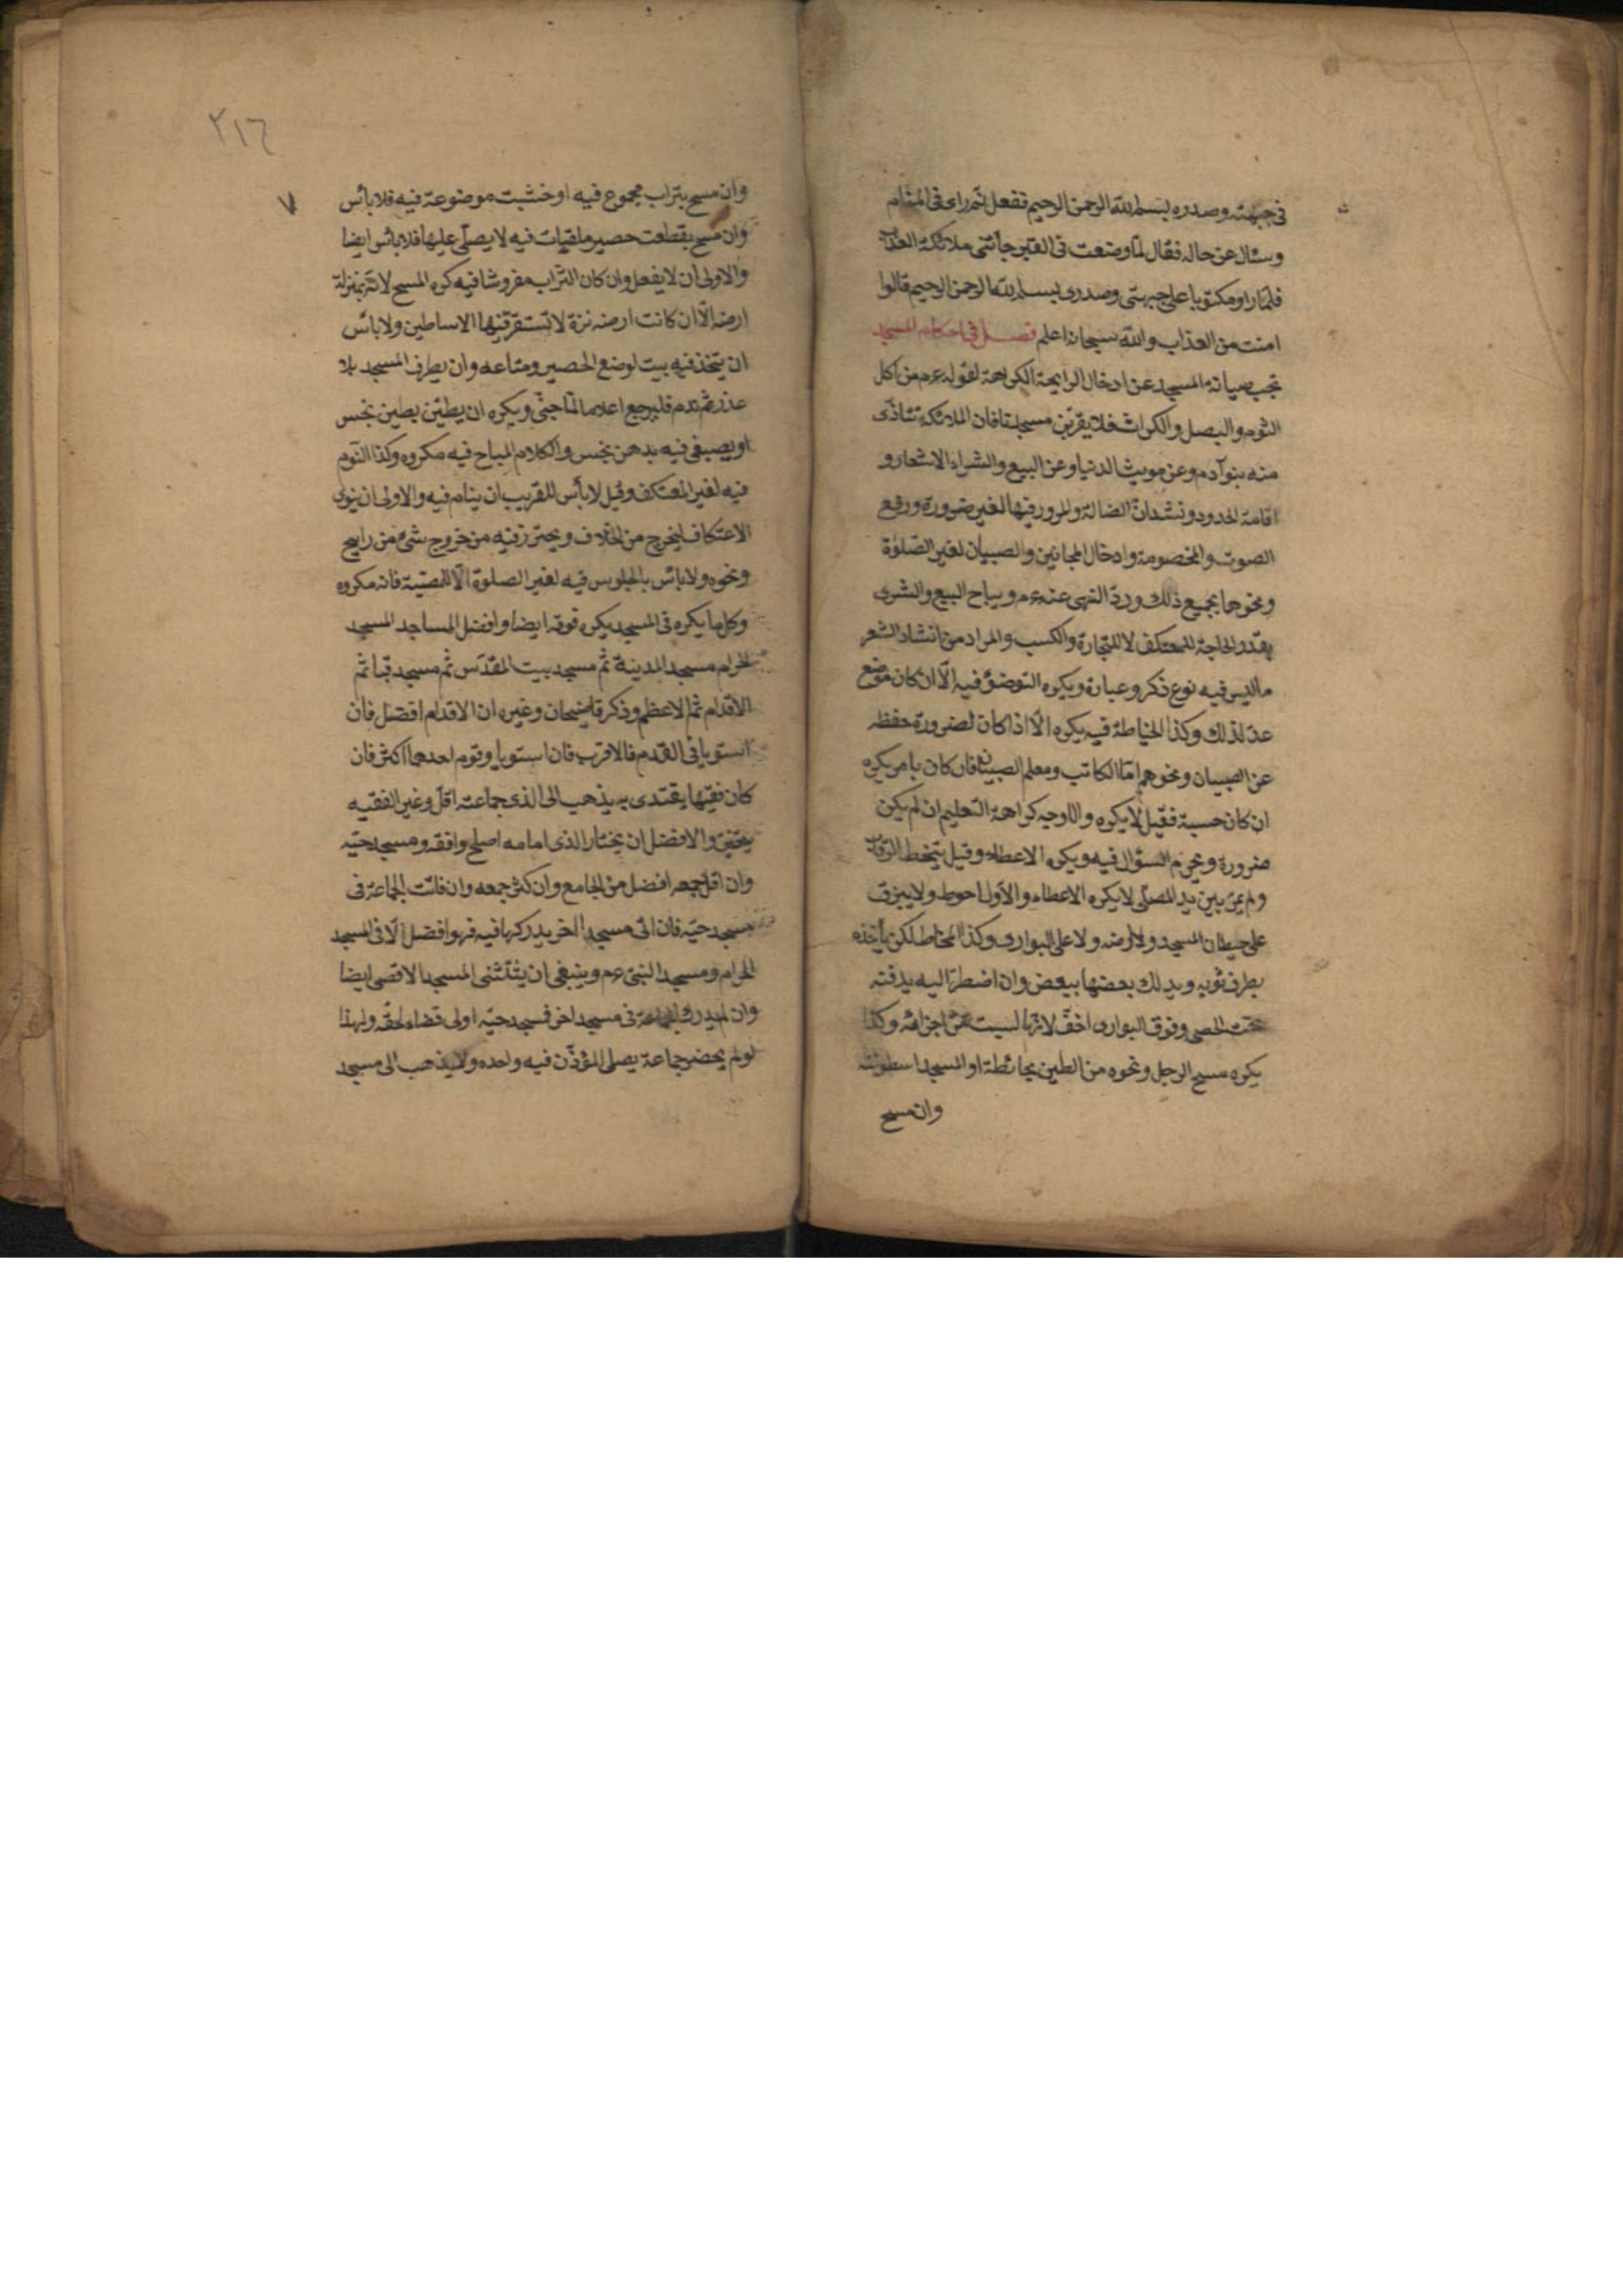 في جبهته وصدره بسم الله الرحمن الرحيم ففعل ثم راى في المنام
وسئال عن حاله فقال لما وضعت في القبر جائتى ملائكة العذاب
فلما راو مكتوبا على جبهتى وصدرى بسم الله الرحمن الرحيم قالوا
امنت من العذاب والله سبحانه اعلم فصل في احكام المسجد
تجب صيانة المسجد عن ادخال الرايحة الكريهة لقوله عم من اكل
الثوم والبصل والكراث فلا يقربن مسجدنا فان الملائكة تتاذى
منه بنو آدم وعن حديث الدنيا وعن البيع والشراء الاشعار و
اقامة الحدود ونشدان الضالة والمرور فيها لغير ضرورة ورفع
الصوت والخصومة وادخال المجانين والصبيان لغير الصلوة
ونحوها بجميع ذلك ورد النهى عنه عم ويباح البيع والشرى
بقدر الحاجة للمعتكف لا للتجارة والكسب والمراد من انشاد الشعر
ما ليس فيه نوع ذكر وعبادة ويكره التوضؤ فيه الا ان كان موضع
عد لذلك وكذا الخياطة فيه يكره الا اذا كان لضرورة حفظه
عن الصبيان ونحوهم اما الكاتب ومعلم الصبيان فان كان باجر يكره
ان كان حسبة فقيل لا يكره والاوجه كراهة التعليم ان لم يكن
ضرورة ويحرم السؤال فيه ويكره الاعطاء وقيل يتخط الرقاب
ولم يمر بين يد المصلى لا يكره الاعطاء والاول احوط ولا يبزق
على حيطان المسجد ولا ارضه ولا على البوارى وكذا المخاط لكن يأخذه
بطرف ثوبه ويدلك بعضها ببعض وان اضطر اليه يدفنه
تحت الحصى وفوق البوارى اخف لانها ليست من اجزائه وكذا
يكره مسح الرجل ونحوه من الطين بحائطة او المسجد اسطونته
وان مسح
٢١٦
٧
وان مسح بتراب مجموع فيه او خشبت موضوعة فيه فلا بأس
وان مسح بقطعت حصير ملقيات فيه لا يصلى عليها فلا بائس ايضا
والاولى ان لا يفعل وان كان التراب مفروشا فيه كره المسح لانه بمنزلة
ارضه الا ان كانت ارضه نزة لا تستقر فيها الاساطين ولا بائس
ان يتخذ فيه بيت لوضع الحصير ومتاعه وان يطرف المسجد بلا
عذر ثم ندم فليرجع اعلاما لما جنى ويكره ان يطين بطين نجس
او يصبغ فيه بدهن نجس والكلام المباح فيه مكروه وكذا النوم
فيه لغير المعتكف وقيل لا بأس للغريب ان ينام فيه والاولى ان ينوى
الاعتكاف ليخرج من الخلاف ويحترز فيه من خروج شئ من رايح
ونحوه ولا بائس بالجلوس فيه لغير الصلوة الا للمصيبة فانه مكروه
وكل ما يكره في المسجد يكره فوقه ايضا وافضل المساجد المسجد
الحرام مسجد المدينة ثم مسجد بيت المقدس ثم مسجد قبا ثم
الاقدام ثم الاعظم وذكر قاضيحان وغيره ان الاقدام افضل فان
استويا في القدم فالاقرب فان استويا وقوم احدهما اكثر فان
كان فقيها يقتدى به يذهب الى الذى جماعته اقل وغير الفقيه
يتخير والافضل ان يختار الذى امامه اصلح وافقه ومسجد حيه
وان اقل جمعه افضل من الجامع وان كثر جمعه وان فاتت الجماعة في
مسجد حيه فان اتى مسجدا اخر يدركها فيه فهو افضل الا في المسجد
الحرام ومسجد النبى عم وينبغى ان يستثنى المسجد الاقصى ايضا
وان لم يدرك الجماعة في مسجد اخر فمسجد حيه اولى قضاء لحقه ولهذا
لو لم يحضر جماعة يصلى المؤذن فيه واحده ولا يذهب الى مسجد